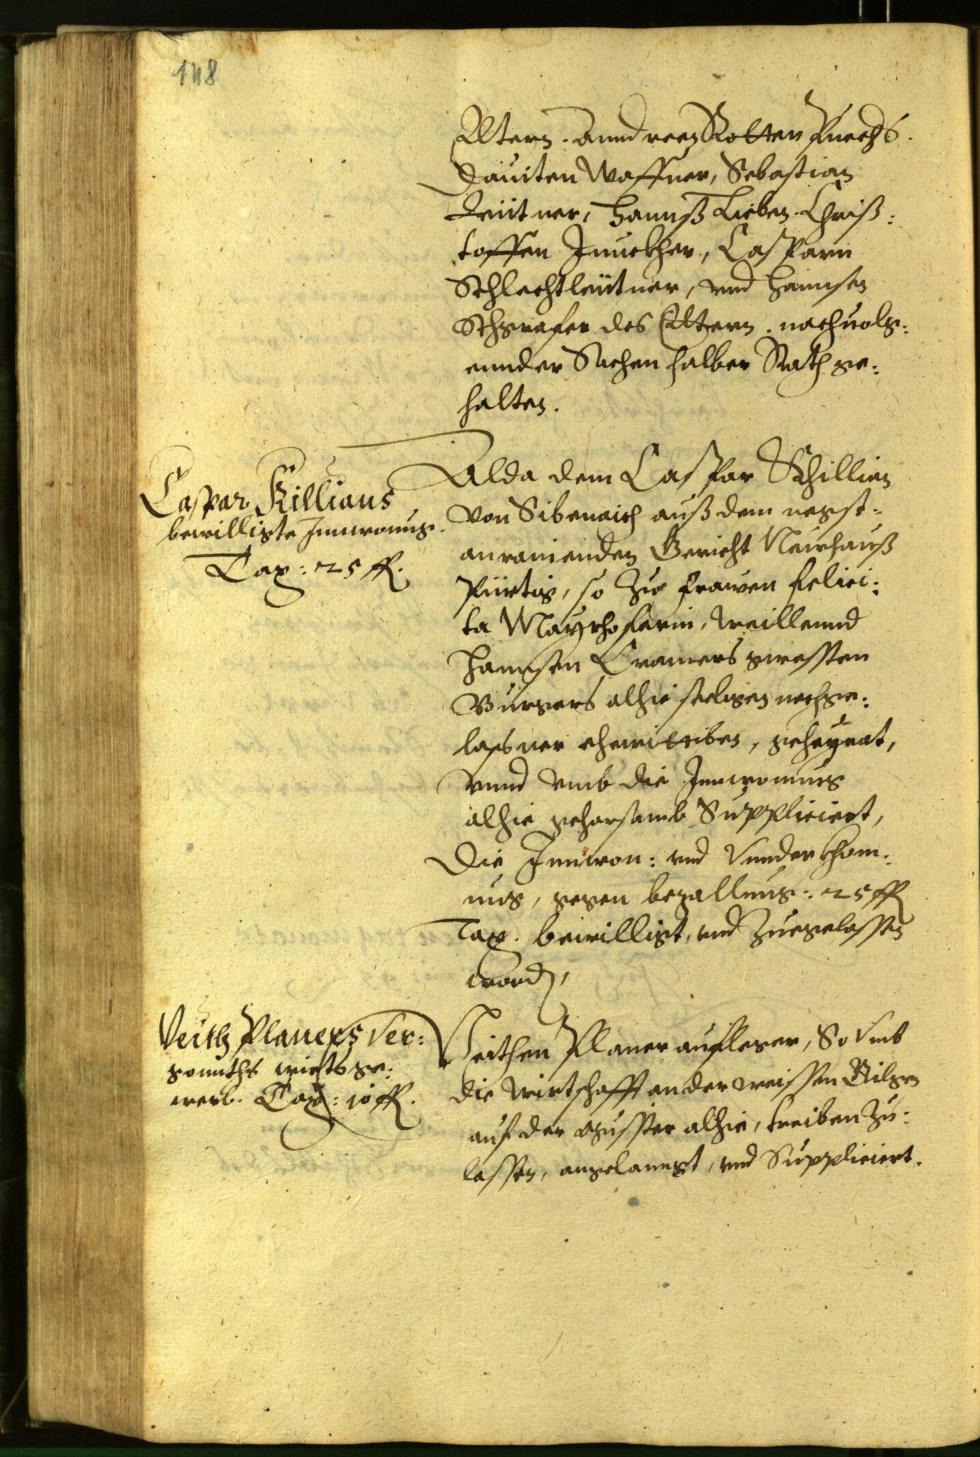 148
Eltern. Anndreen Rotten Puechs.
Dauiten Waffner, Sebastian
Leütner, Hannß Lieben. Chriß:
toffen Junckher, Casparn
Schlechtleütner, vnd Hannsen
Schgrafer des Eltern. nachuolg:
ennder Sachen halber Rath ge:
halten.
Caspar Killians
bewilligte Innwonung.
Tax: 25 fl.
Alda dem Caspar Khillian
von Sibenaich auß dem negst:
anrainenden Gericht Neuhauß
pürtig, so zue Frawen Felici:
ta Mayrhoferin, weillennd
Hannsen Cramers gwessten
Burgers alhie seeligen nachge:
lassner ehewittiben, geheyrat,
vnnd vmb die Innwonung
alhie gehorsamb Suppliciert,
Die Innwon: vnd Vnnderkhom:
nus, gegen bezallung: 25 fl
Tax. bewilligt, vnd zuegelassen
word,
Veith Planers ver:
gonnths wirtsge:
werb. Tax: 10 fl.
Veithen Planer aufleger, So vmb
die Wirtschafft an der weissen Gilgen
auf der alhie, treiben zu:
lassen, angelanngt, vnd Suppliciert.